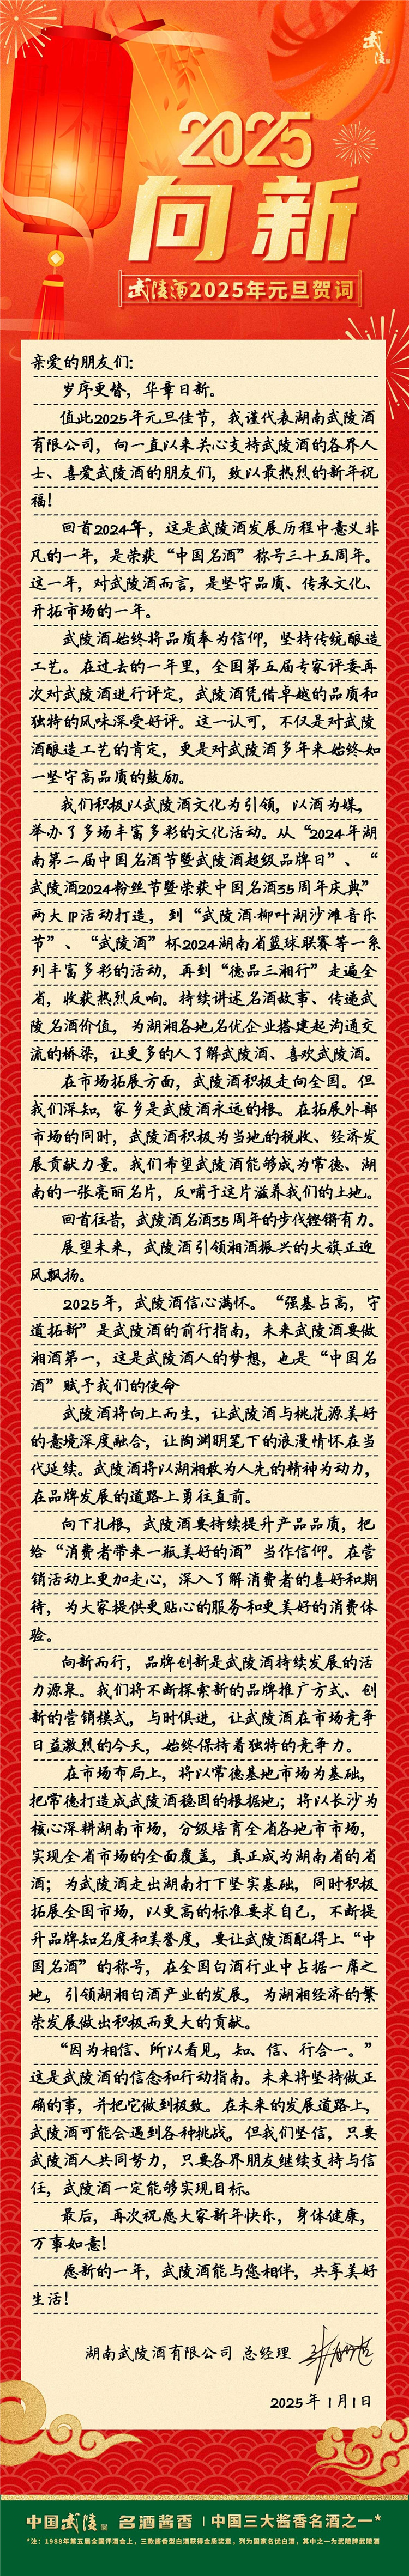 武陵
2025
向新
武陵酒2025年元旦贺词
亲爱的朋友们：
岁序更替，华章日新。
值此2025年元旦佳节，我谨代表湖南武陵酒
有限公司，向一直以来关心支持武陵酒的各界人
士、喜爱武陵酒的朋友们，致以最热烈的新年祝
福！
回首2024年，这是武陵酒发展历程中意义非
凡的一年，是荣获“中国名酒”称号三十五周年。
这一年，对武陵酒而言，是坚守品质、传承文化、
开拓市场的一年。
武陵酒始终将品质奉为信仰，坚持传统酿造
工艺。在过去的一年里，全国第五届专家评委再
次对武陵酒进行评定，武陵酒凭借卓越的品质和
独特的风味深受好评。这一认可，不仅是对武陵
酒酿造工艺的肯定，更是对武陵酒多年来始终如
一坚守高品质的鼓励。
我们积极以武陵酒文化为引领，以酒为媒，
举办了多场丰富多彩的文化活动。从“2024年湖
南第二届中国名酒节暨武陵酒超级品牌日”、“
武陵酒2024粉丝节暨荣获中国名酒35周年庆典”
两大IP活动打造，到“武陵酒·柳叶湖沙滩音乐
节”、“武陵酒”杯2024湖南省篮球联赛等一系
列丰富多彩的活动，再到“德品三湘行”走遍全
省，收获热烈反响。持续讲述名酒故事、传递武
陵名酒价值，为湖湘各地名优企业搭建起沟通交
流的桥梁，让更多的人了解武陵酒、喜欢武陵酒。
在市场拓展方面，武陵酒积极走向全国。但
我们深知，家乡是武陵酒永远的根。在拓展外部
市场的同时，武陵酒积极为当地的税收、经济发
展贡献力量。我们希望武陵酒能够成为常德、湖
南的一张亮丽名片，反哺于这片滋养我们的土地。
回首往昔，武陵酒名酒35周年的步伐铿锵有力。
展望未来，武陵酒引领湘酒振兴的大旗正迎
风飘扬。
2025年，武陵酒信心满怀。“强基占高，守
道拓新”是武陵酒的前行指南，未来武陵酒要做
湘酒第一，这是武陵酒人的梦想，也是“中国名
酒”赋予我们的使命
武陵酒将向上而生，让武陵酒与桃花源美好
的意境深度融合，让陶渊明笔下的浪漫情怀在当
代延续。武陵酒将以湖湘敢为人先的精神为动力，
在品牌发展的道路上勇往直前。
向下扎根，武陵酒要持续提升产品品质，把
给“消费者带来一瓶美好的酒”当作信仰。在营
销活动上更加走心，深入了解消费者的喜好和期
待，为大家提供更贴心的服务和更美好的消费体
验。
向新而行，品牌创新是武陵酒持续发展的活
力源泉。我们将不断探索新的品牌推广方式、创
新的营销模式，与时俱进，让武陵酒在市场竞争
日益激烈的今天，始终保持着独特的竞争力。
在市场布局上，将以常德基地市场为基础，
把常德打造成武陵酒稳固的根据地；将以长沙为
核心深耕湖南市场，分级培育全省各地市市场，
实现全省市场的全面覆盖，真正成为湖南省的省
酒；为武陵酒走出湖南打下坚实基础，同时积极
拓展全国市场，以更高的标准要求自己，不断提
升品牌知名度和美誉度，要让武陵酒配得上“中
国名酒”的称号，在全国白酒行业中占据一席之
地，引领湖湘白酒产业的发展，为湖湘经济的繁
荣发展做出积极而更大的贡献。
“因为相信、所以看见，知、信、行合一。”
这是武陵酒的信念和行动指南。未来将坚持做正
确的事，并把它做到极致。在未来的发展道路上，
武陵酒可能会遇到各种挑战，但我们坚信，只要
武陵酒人共同努力，只要各界朋友继续支持与信
任，武陵酒一定能够实现目标。
最后，再次祝愿大家新年快乐，身体健康，
万事如意！
愿新的一年，武陵酒能与您相伴，共享美好
生活！
湖南武陵酒有限公司 总经理
2025年1月1日
中国武陵 名酒酱香 | 中国三大酱香名酒之一*
*注：1988年第五届全国评酒会上，三款酱香型白酒获得金质奖章，列为国家名优白酒，其中之一为武陵牌武陵酒